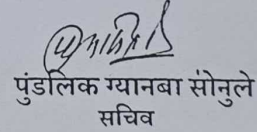 पुंडलिक ग्यानबा सोनुले
सचिव